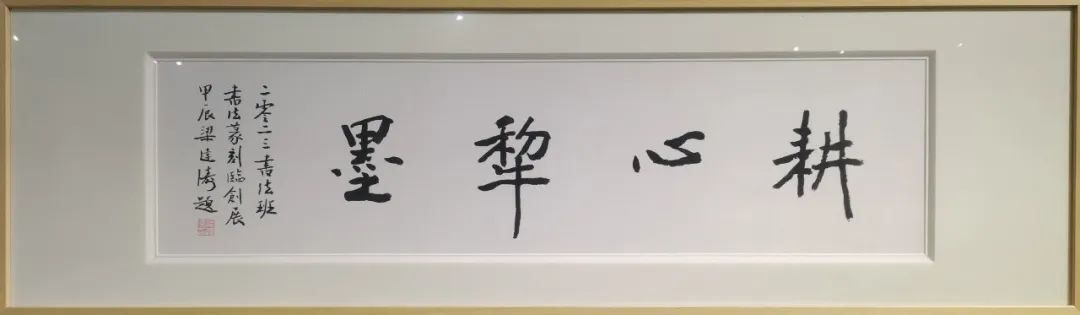 耕心犁墨
二零二三書法班
書法篆刻臨創展
甲辰梁達濤題